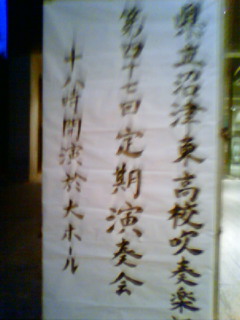 県立沼津東高校吹奏楽部
第四十七回定期演奏会
十八時開演於大ホール